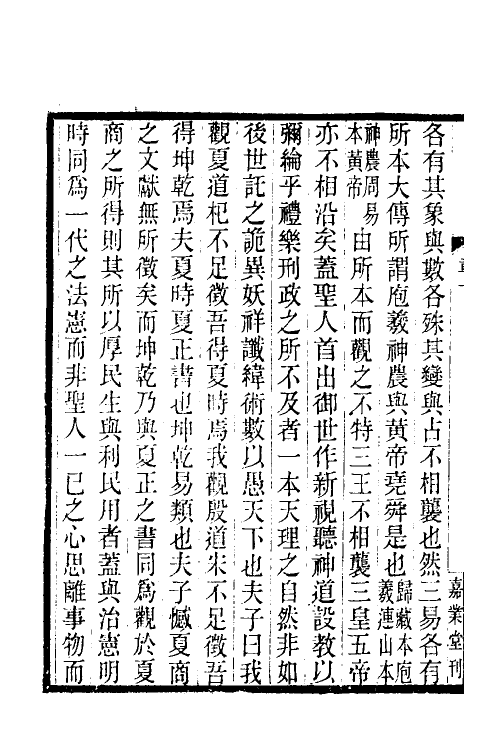 嘉業堂刊
各有其象與數各殊其變與占不相襲也然三易各有
所本大傳所謂庖羲神農與黃帝堯舜是也歸藏本庖羲連山本
神農周易本黃帝由所本而觀之不特三王不相襲三皇五帝
亦不相沿矣蓋聖人首出御世作新視聽神道設教以
彌綸乎禮樂刑政之所不及者一本天理之自然非如
後世託之詭異妖祥讖緯術數以愚天下也夫子曰我
觀夏道杞不足徵吾得夏時焉我觀殷道宋不足徵吾
得坤乾焉夫夏時夏正書也坤乾易類也夫子憾夏商
之文獻無所徵矣而坤乾乃與夏正之書同爲觀於夏
商之所得則其所以厚民生與利民用者蓋與治憲明
時同爲一代之法憲而非聖人一己之心思離事物而